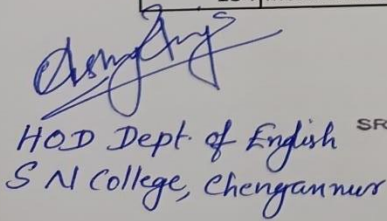 HOD Dept. of English SR
S N College, Chengannur